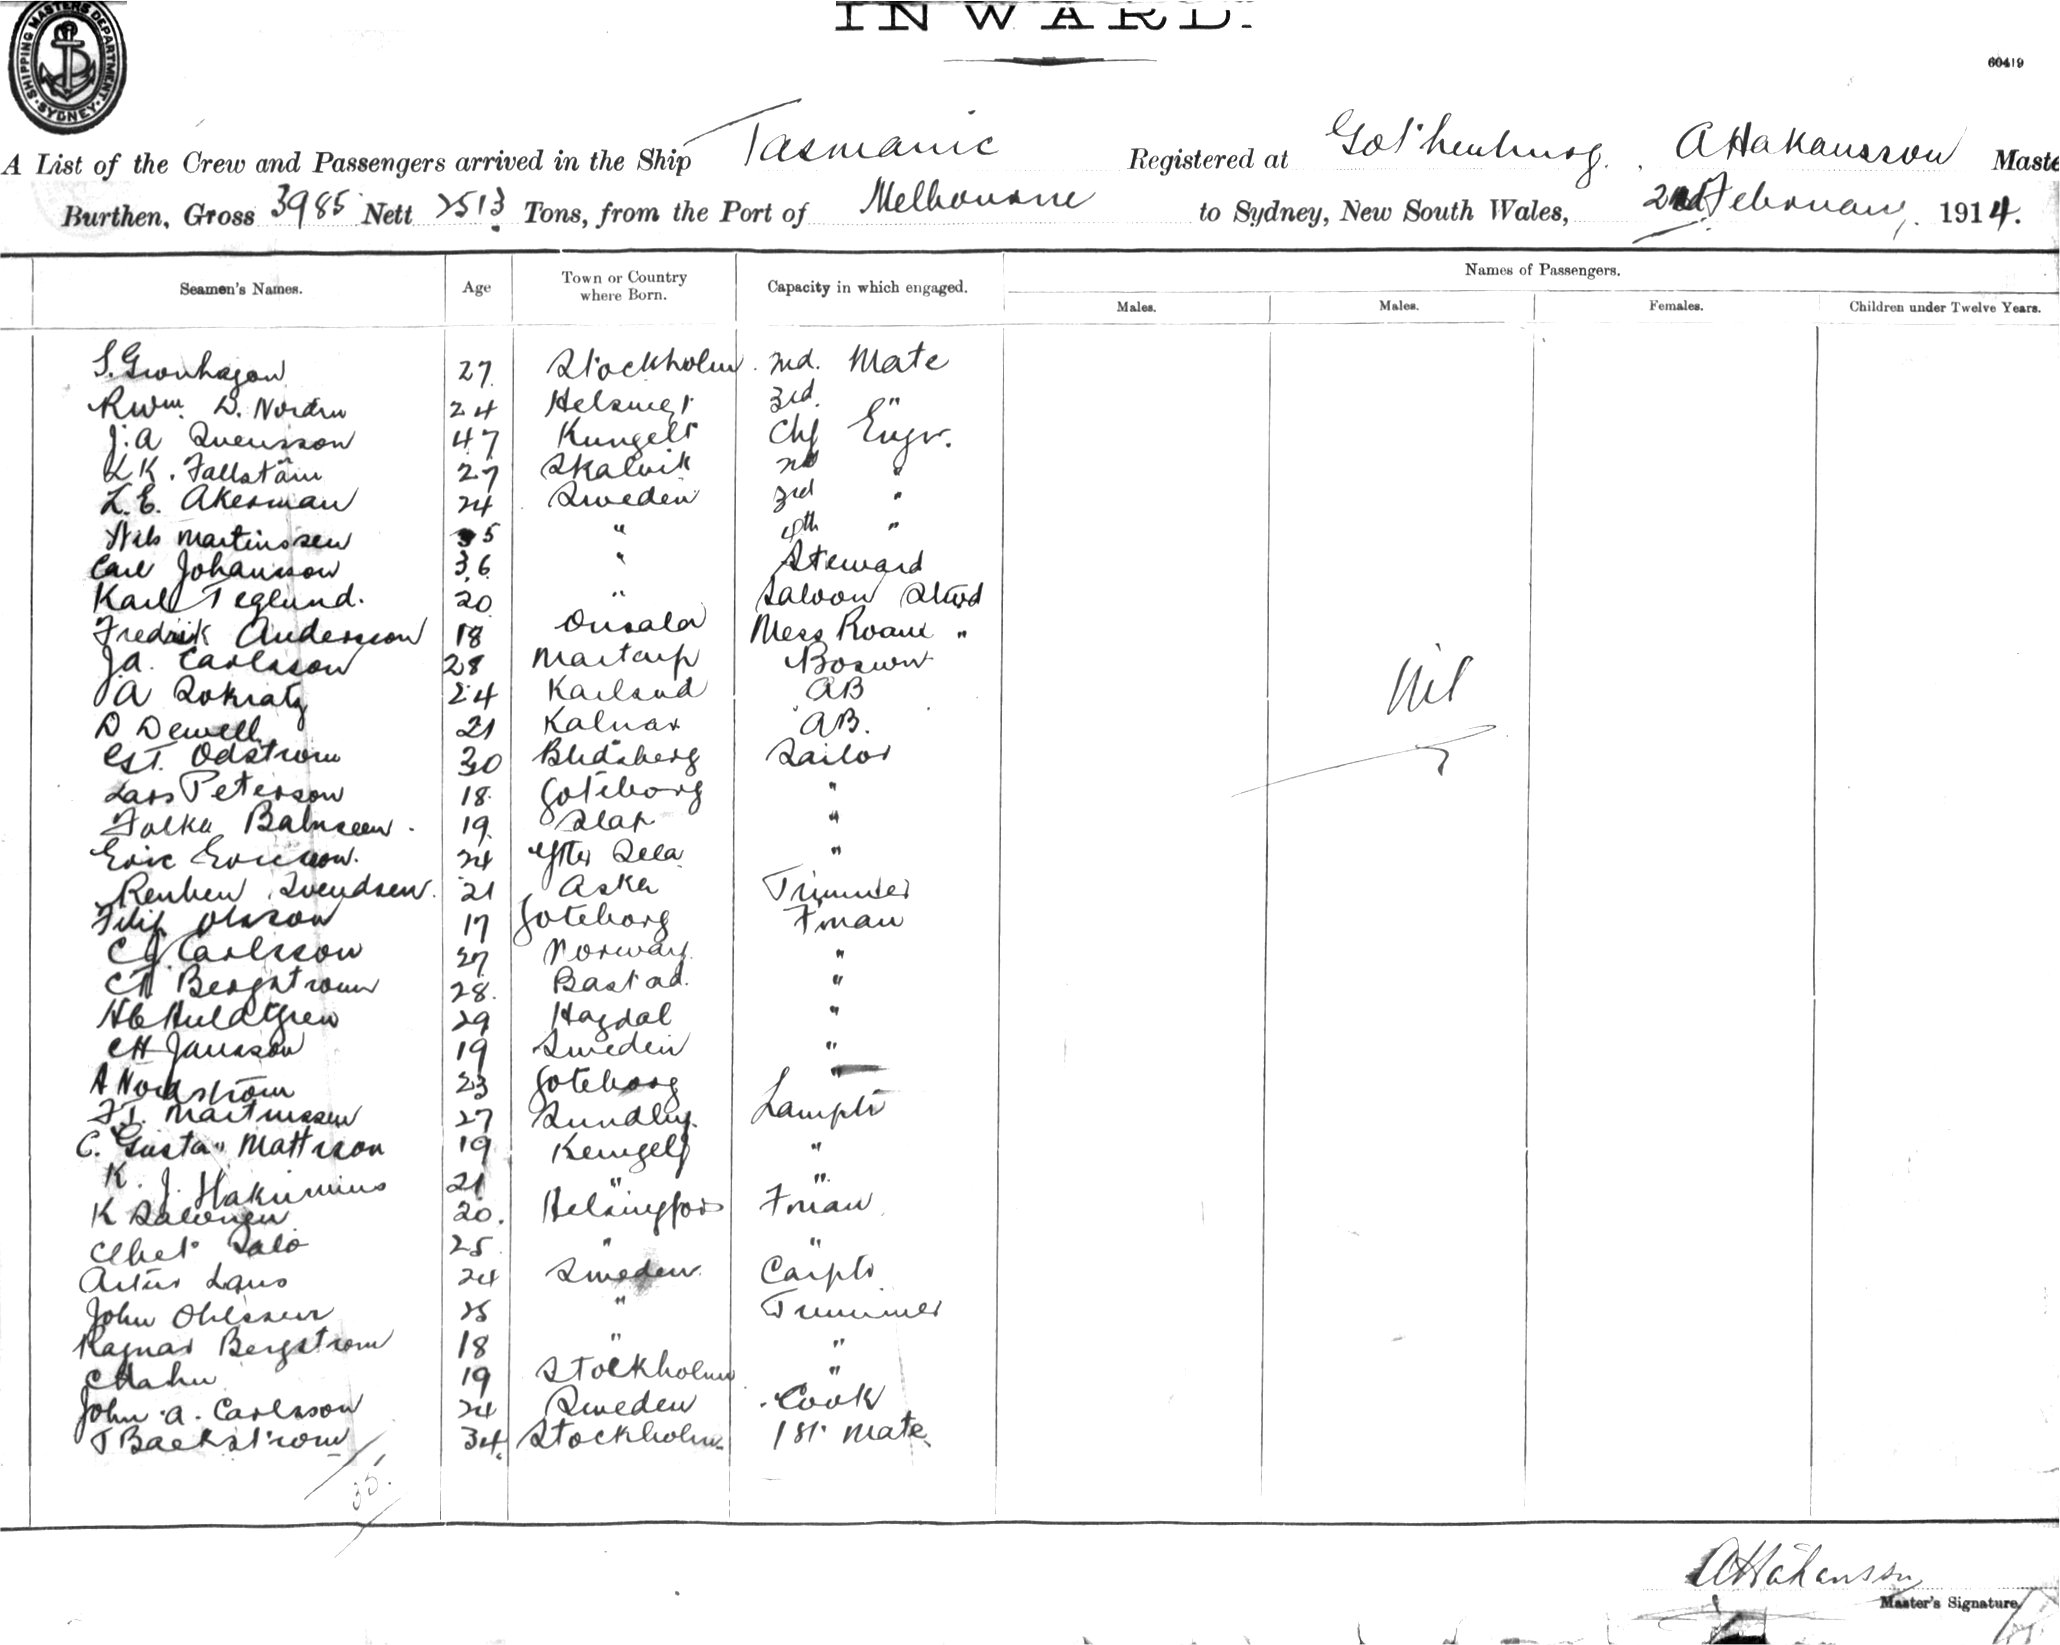 SHIPPING MASTERS DEPARTMENT · SYDNEY ·
INWARD.
60419
A List of the Crew and Passengers arrived in the Ship Tasmanic Registered at Gothenburg. A Hakansson Maste
Burthen, Gross 3985 Nett 2513 Tons, from the Port of Melbourne to Sydney, New South Wales, 2nd February. 1914.
Seamen's Names. Age Town or Country where Born. Capacity in which engaged. Names of Passengers.
Males. Males. Females. Children under Twelve Years.
27 Stockholm 2nd. Mate
D. Norden 24 3rd. "
J.A Svensson 47 Chf Engr.
L K. 27 2nd "
L.E. Akerman 24 Sweden 3rd "
Nils Martinssen 5 " 4th "
Carl Johansson 36 " Steward
Karl Teglund. 20 " Saloon Stwd
Fredrik Andersson 18 Onsala Mess Room "
J.A. Carlsson 28 Bosun
A 24 AB
D Dewell 21 Kalmar AB.
Odstrom 30 Sailor
Lars Peterson 18 Goteborg "
19 "
Eric Ericsson. 24 "
Reuben Svendsen. 21 Trimmer
Filip Olsson 17 Goteborg Fman
C J Carlsson 27 Norway "
Bergstrom 28. Bastad. "
29 "
CH Jansson 19 Sweden "
A Nordstrom 23 Goteborg "
F.J. Martinssen 27 Lamptr
C. Gusta" Mattsson 19 "
K. J. 21 " "
K 20. Helsingfors Fman
Salo 25 " "
24 Sweden Carptr
John Ohlssen 25 " Trimmer
Ragnar Bergstrom 18 " "
C Hahn 19 Stockholm "
John A. Carlsson 24 Sweden Cook
T Backstrom 34 Stockholm 1st Mate
Nil
35.
A Håkansson
Master's Signature